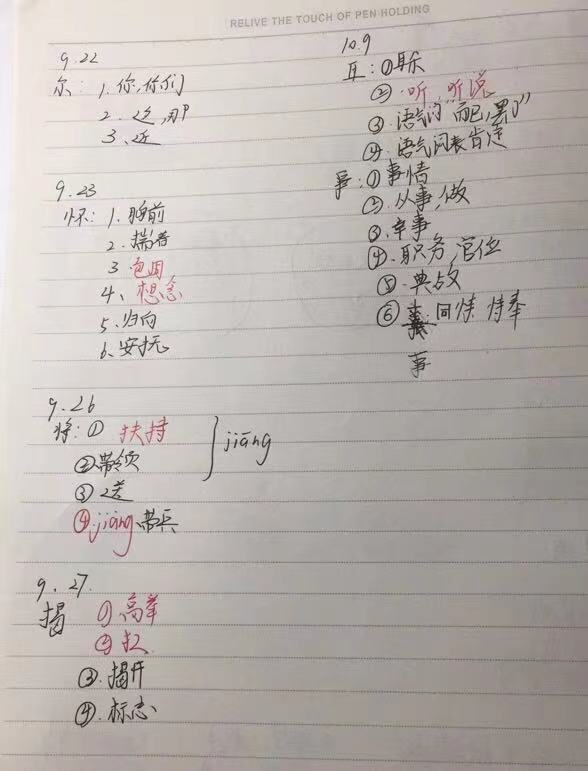 RELIVE THE TOUCH OF PEN HOLDING
9.22
尔：1.你,你们
2.这,那
3.近
9.23
怀：1.胸前
2.揣着
3
4、想念
5.归向
6.安抚
9.26
将：① 扶持
②带领
③送
jiāng
④.jiàng.带兵
9.27.
揭 ①.高举
②.扛
③.揭开
④.标志
10.9
耳：①耳朵
②.听,听说
③.语气词"而已,罢了"
④.语气词表肯定
事：①事情
②.从事,做
③.
④.职务,官位
⑤.典故
⑥ 同
事